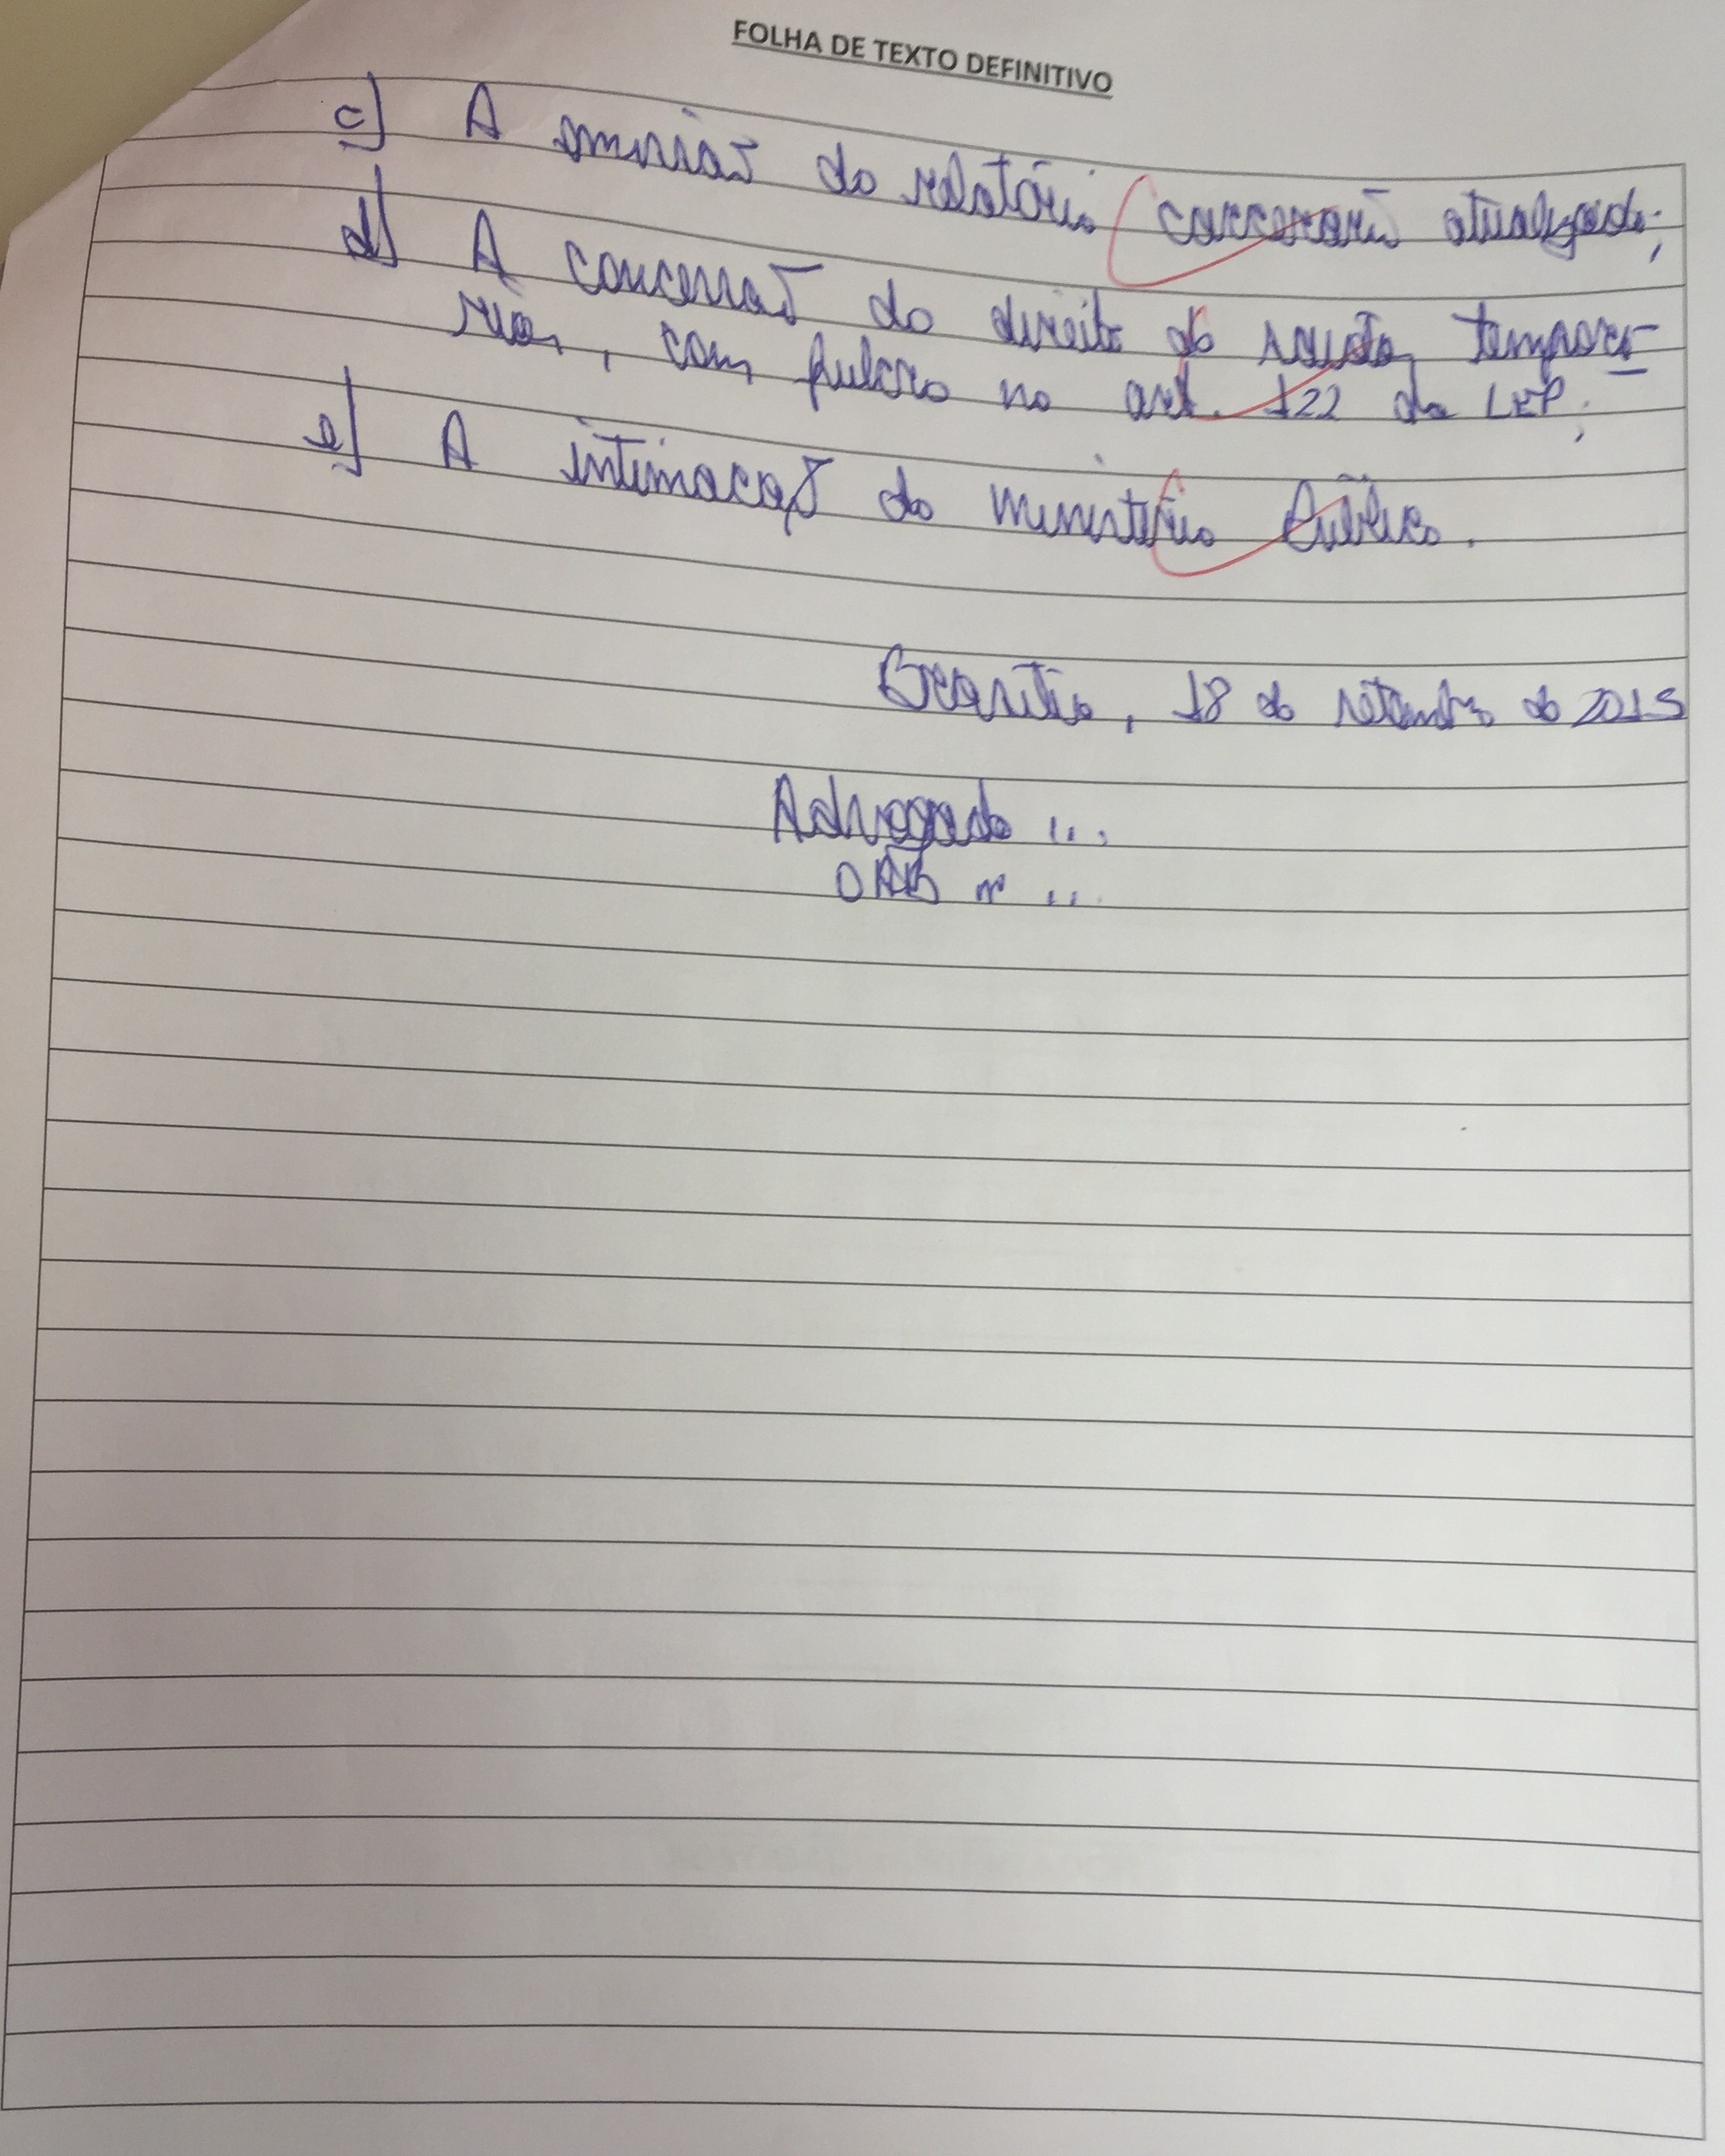 FOLHA DE TEXTO DEFINITIVO
c) A emissão do relatório carcerário atualizado;
d) A concessão do direito de saída temporá-
ria, com fulcro no art. 122 da LEP;
e) A intimação do Ministério Público.
Brasília, 18 de setembro de 2015
Advogado ...
OAB nº ...